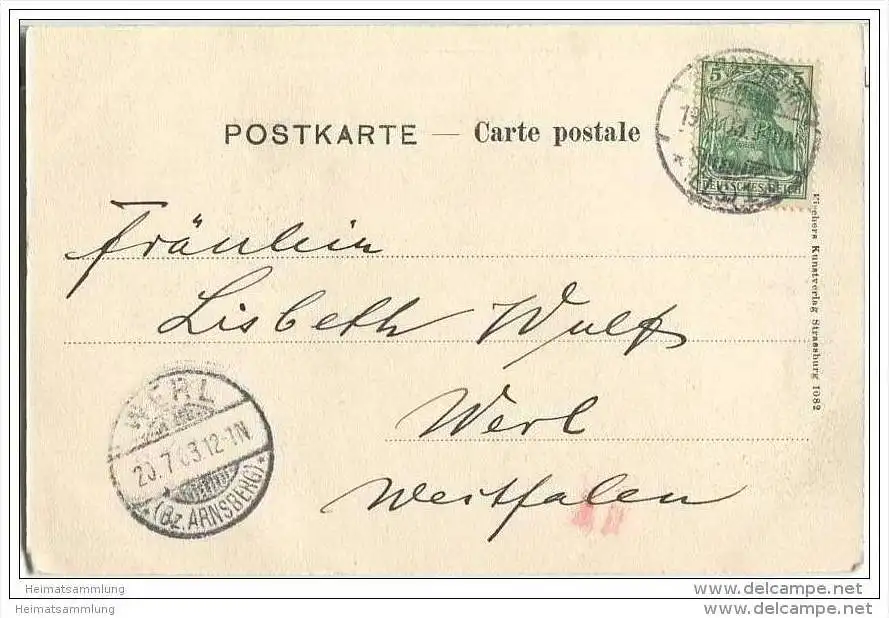 POSTKARTE — Carte postale
5 5
DEUTSCHES REICH
Fräulein
Lisbeth Wulf
Werl
Westfalen
WERL
20.7.03.12-1N
* (Bz. ARNSBERG) *
Fischers Kunstverlag Strassburg 1082
Heimatsammlung
Heimatsammlung
www.delcampe.net
www.delcampe.net